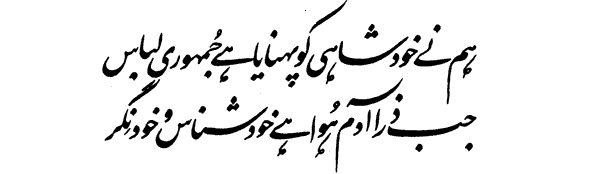 ہم نے خود شاہی کو پہنایا ہے جُمہوری لباس
جب ذرا آدم ہُوا ہے خود شناس و خود نگر